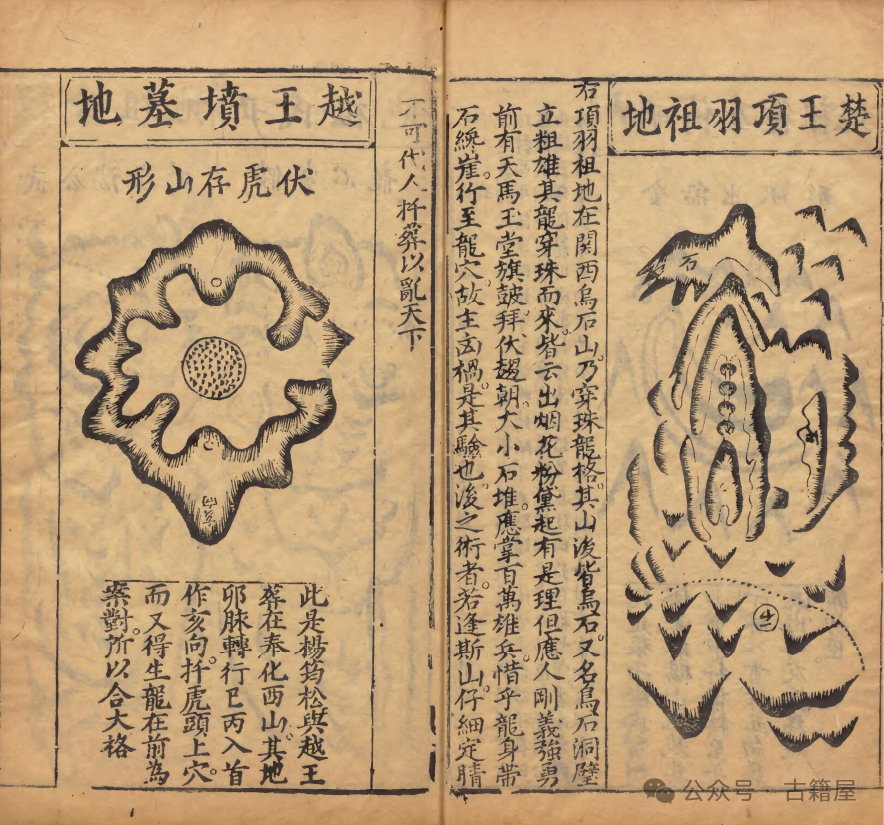 楚王項羽祖地
石
右項羽祖地在関西烏石山。乃穿珠龍格。其山後皆烏石。又名烏石洞壁
立粗雄其龍穿珠而來。皆云出烟花粉黛起有是理但應人剛義強勇
前有天馬玉堂旗皷。拜伏趨朝。大小石堆。應掌百萬雄兵。惜乎龍身帯
石纔崔。行至龍穴。故主凶禍。是其驗也。後之術者。若逢斯山。仔細定睛
不可代人扦葬以亂天下
越王墳墓地
伏虎存山形
此是楊筠松與越王
葬在奉化西山。其地
卯脉轉行巳丙入首
作亥向。扦虎頭上穴。
而又得生龍在前為
案對。所以合大格
公众号 · 古籍屋